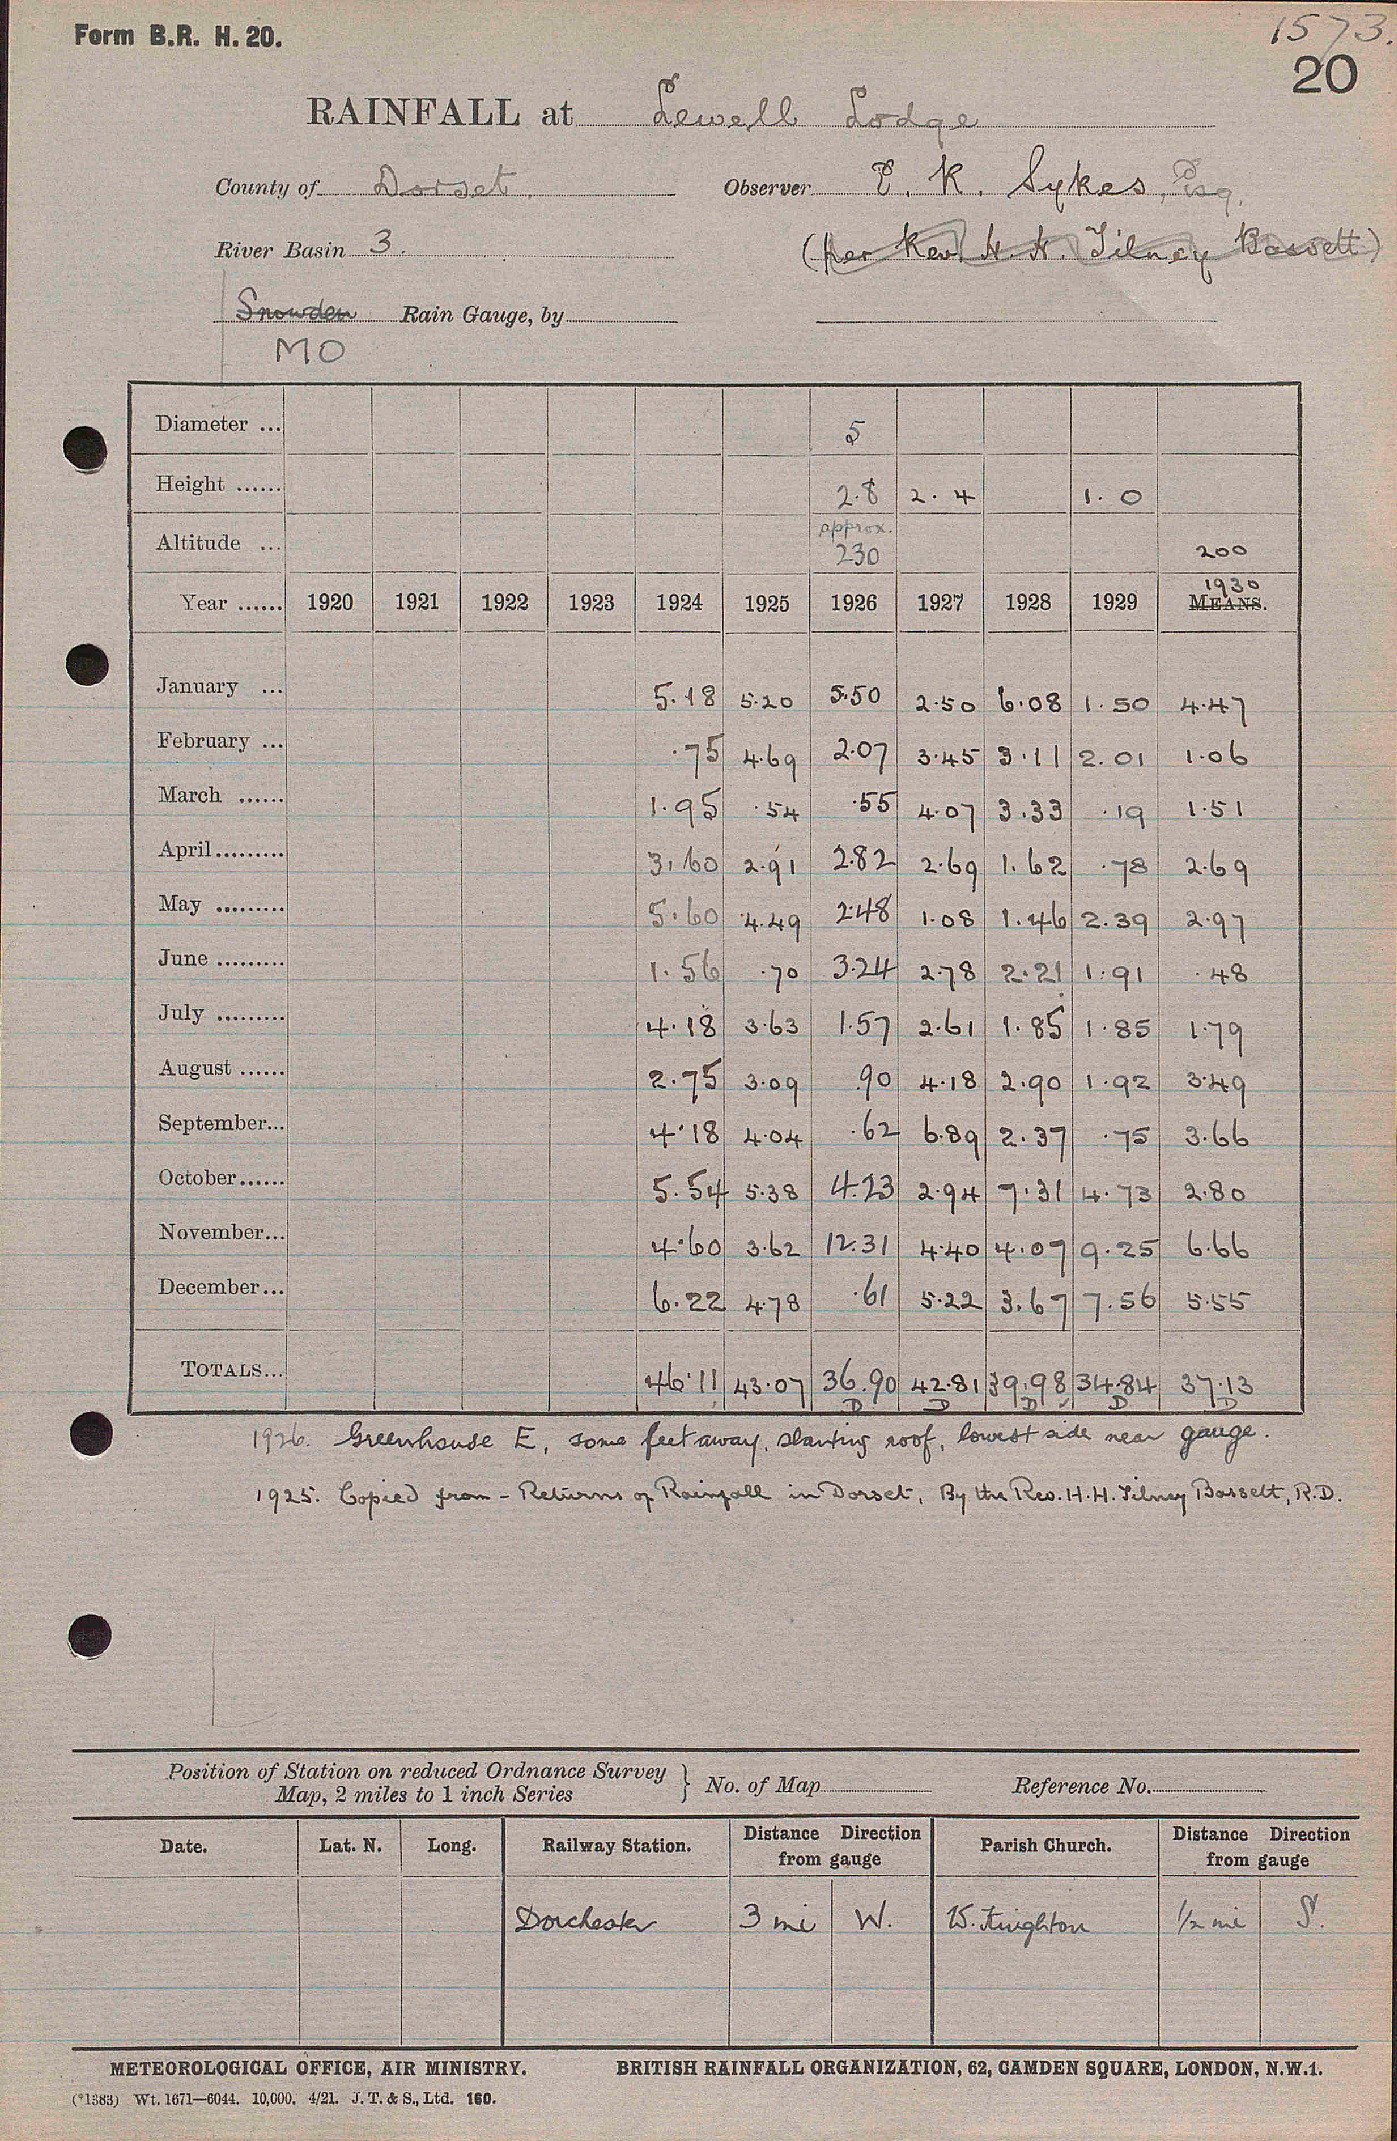 Form B.R. H. 20.
1573.
20
RAINFALL at Lewell Lodge
County of Dorset. Observer E. K. Sykes, Esq.
River Basin 3. (per Rev. H. H. Tilney Bassett)
Snowden Rain Gauge, by
MO
Diameter ... 5
Height ...... 2.8 2.4 1.0
approx.
Altitude ... 230 200
1930
Year ...... 1920 1921 1922 1923 1924 1925 1926 1927 1928 1929 MEANS.
January ... 5.18 5.20 5.50 2.50 6.08 1.50 4.47
February ... .75 4.69 2.07 3.45 3.11 2.01 1.06
March ...... 1.95 .54 .55 4.07 3.33 .19 1.51
April ......... 3.60 2.91 2.82 2.69 1.62 .78 2.69
May ......... 5.60 4.49 2.48 1.08 1.46 2.39 2.97
June ......... 1.56 .70 3.24 2.78 2.21 1.91 .48
July ......... 4.18 3.63 1.57 2.61 1.85 1.85 1.79
August ...... 2.75 3.09 .90 4.18 2.90 1.92 3.49
September... 4.18 4.04 .62 6.89 2.37 .75 3.66
October ...... 5.54 5.38 4.23 2.94 7.31 4.73 2.80
November... 4.60 3.62 12.31 4.40 4.07 9.25 6.66
December ... 6.22 4.78 .61 5.22 3.67 7.56 5.55
TOTALS... 46.11 43.07 36.90 42.81 39.98 34.84 37.13
D D D D D
1926. Greenhouse E, some feet away, slanting roof, lowest side near gauge.
1925. Copied from - Returns of Rainfall in Dorset, By the Rev. H. H. Tilney Bassett, R.D.
Position of Station on reduced Ordnance Survey
Map, 2 miles to 1 inch Series } No. of Map Reference No.
Date. Lat. N. Long. Railway Station. Distance Direction from gauge Parish Church. Distance Direction from gauge
Dorchester 3 mi W. W. Knighton 1/2 mi S.
METEOROLOGICAL OFFICE, AIR MINISTRY. BRITISH RAINFALL ORGANIZATION, 62, CAMDEN SQUARE, LONDON, N.W.1.
(*1383) Wt. 1671—6044. 10,000. 4/21. J. T. & S., Ltd. 160.